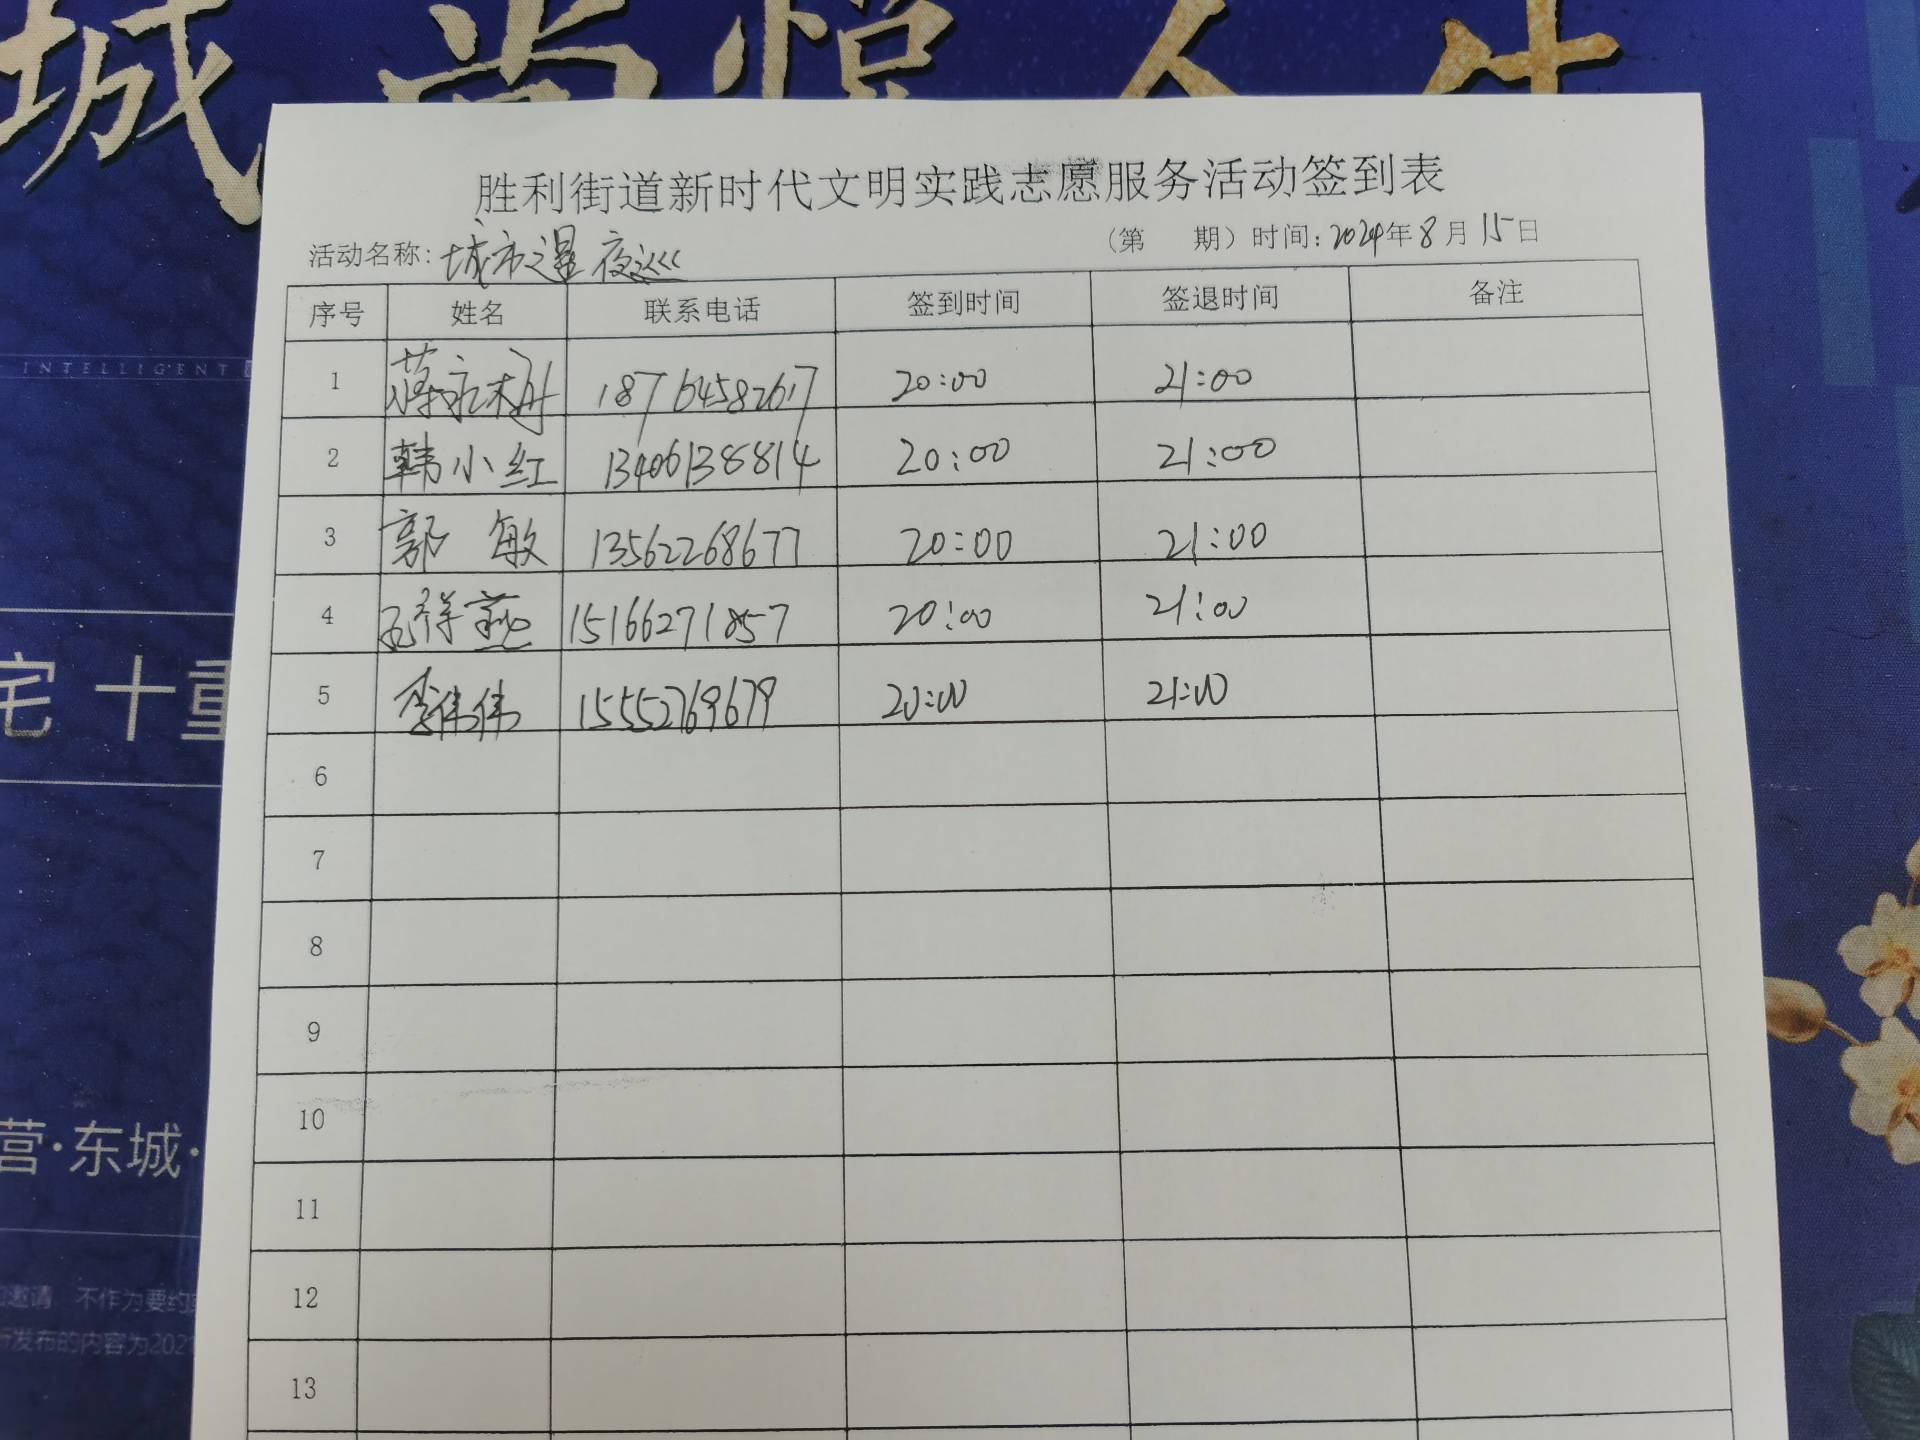 城 尚 悦 人 生
胜利街道新时代文明实践志愿服务活动签到表
活动名称：城市之星夜巡
（第 期）时间：2024年8月15日
序号 姓名 联系电话 签到时间 签退时间 备注
1 18764582617 20:00 21:00
2 韩小红 13406138814 20:00 21:00
3 郭敏 13562268677 20:00 21:00
4 15166271857 20:00 21:00
5 李伟伟 15552769679 20:00 21:00
6
7
8
9
10
11
12
13
INTELLIGENT
宅 十重
营·东城·
邀请 不作为要约
所发布的内容为2021